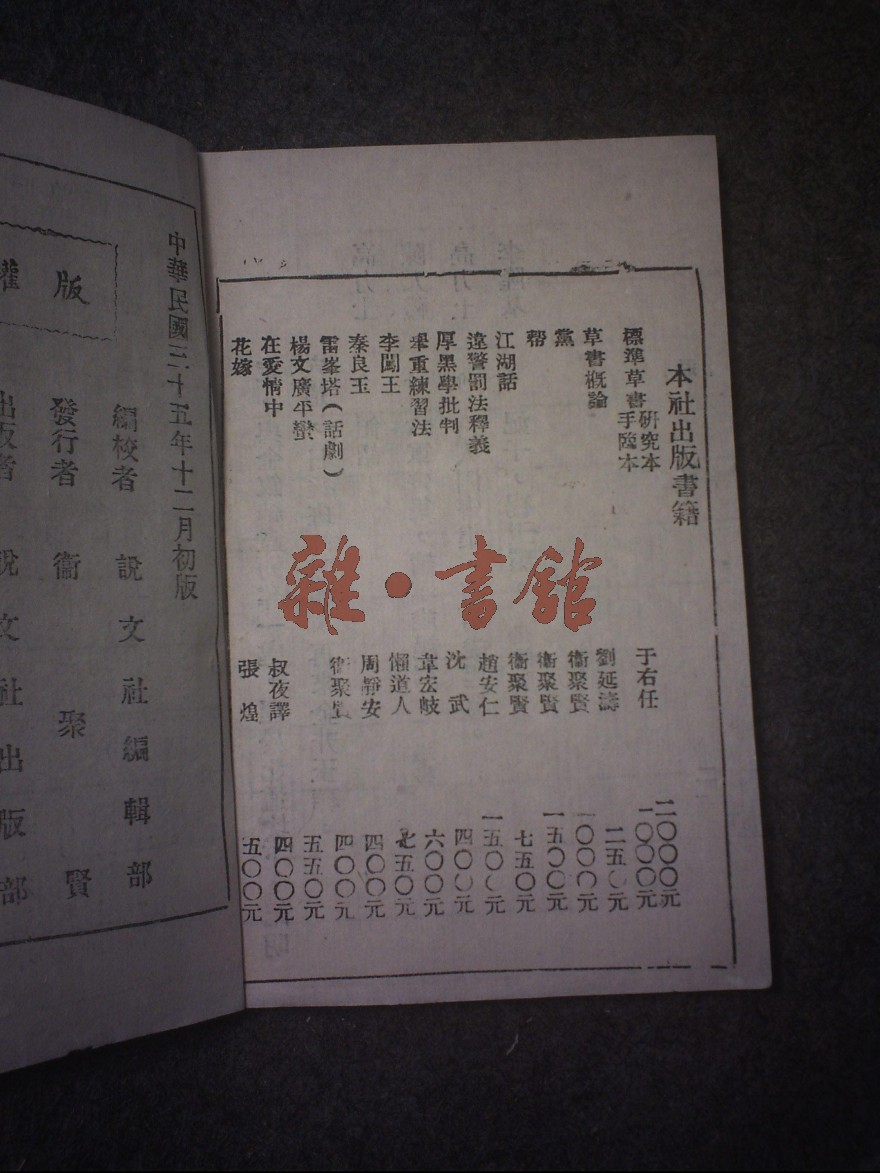 本社出版書籍
標準草書 研究本 手臨本 于右任 二〇〇〇元 一〇〇〇元
草書概論 劉延濤 二五〇元
黨 衞聚賢 一〇〇〇元
帮 衞聚賢 一五〇〇元
江湖話 衞聚賢 七五〇元
違警罰法釋義 趙安仁 一五〇〇元
厚黑學批判 沈武 四〇〇元
舉重練習法 韋宏岐 六〇〇元
李闖王 懶道人 七五〇元
秦良玉 周靜安 四〇〇元
雷峯塔(話劇) 衞聚賢 四〇〇元
楊文廣平蠻 五五〇元
在愛情中 叔夜譯 四〇〇元
花嫁 張煌 五〇〇元
雜·書舘
中華民國三十五年十二月初版
版權
編校者 說文社編輯部
發行者 衞聚賢
出版者 說文社出版部